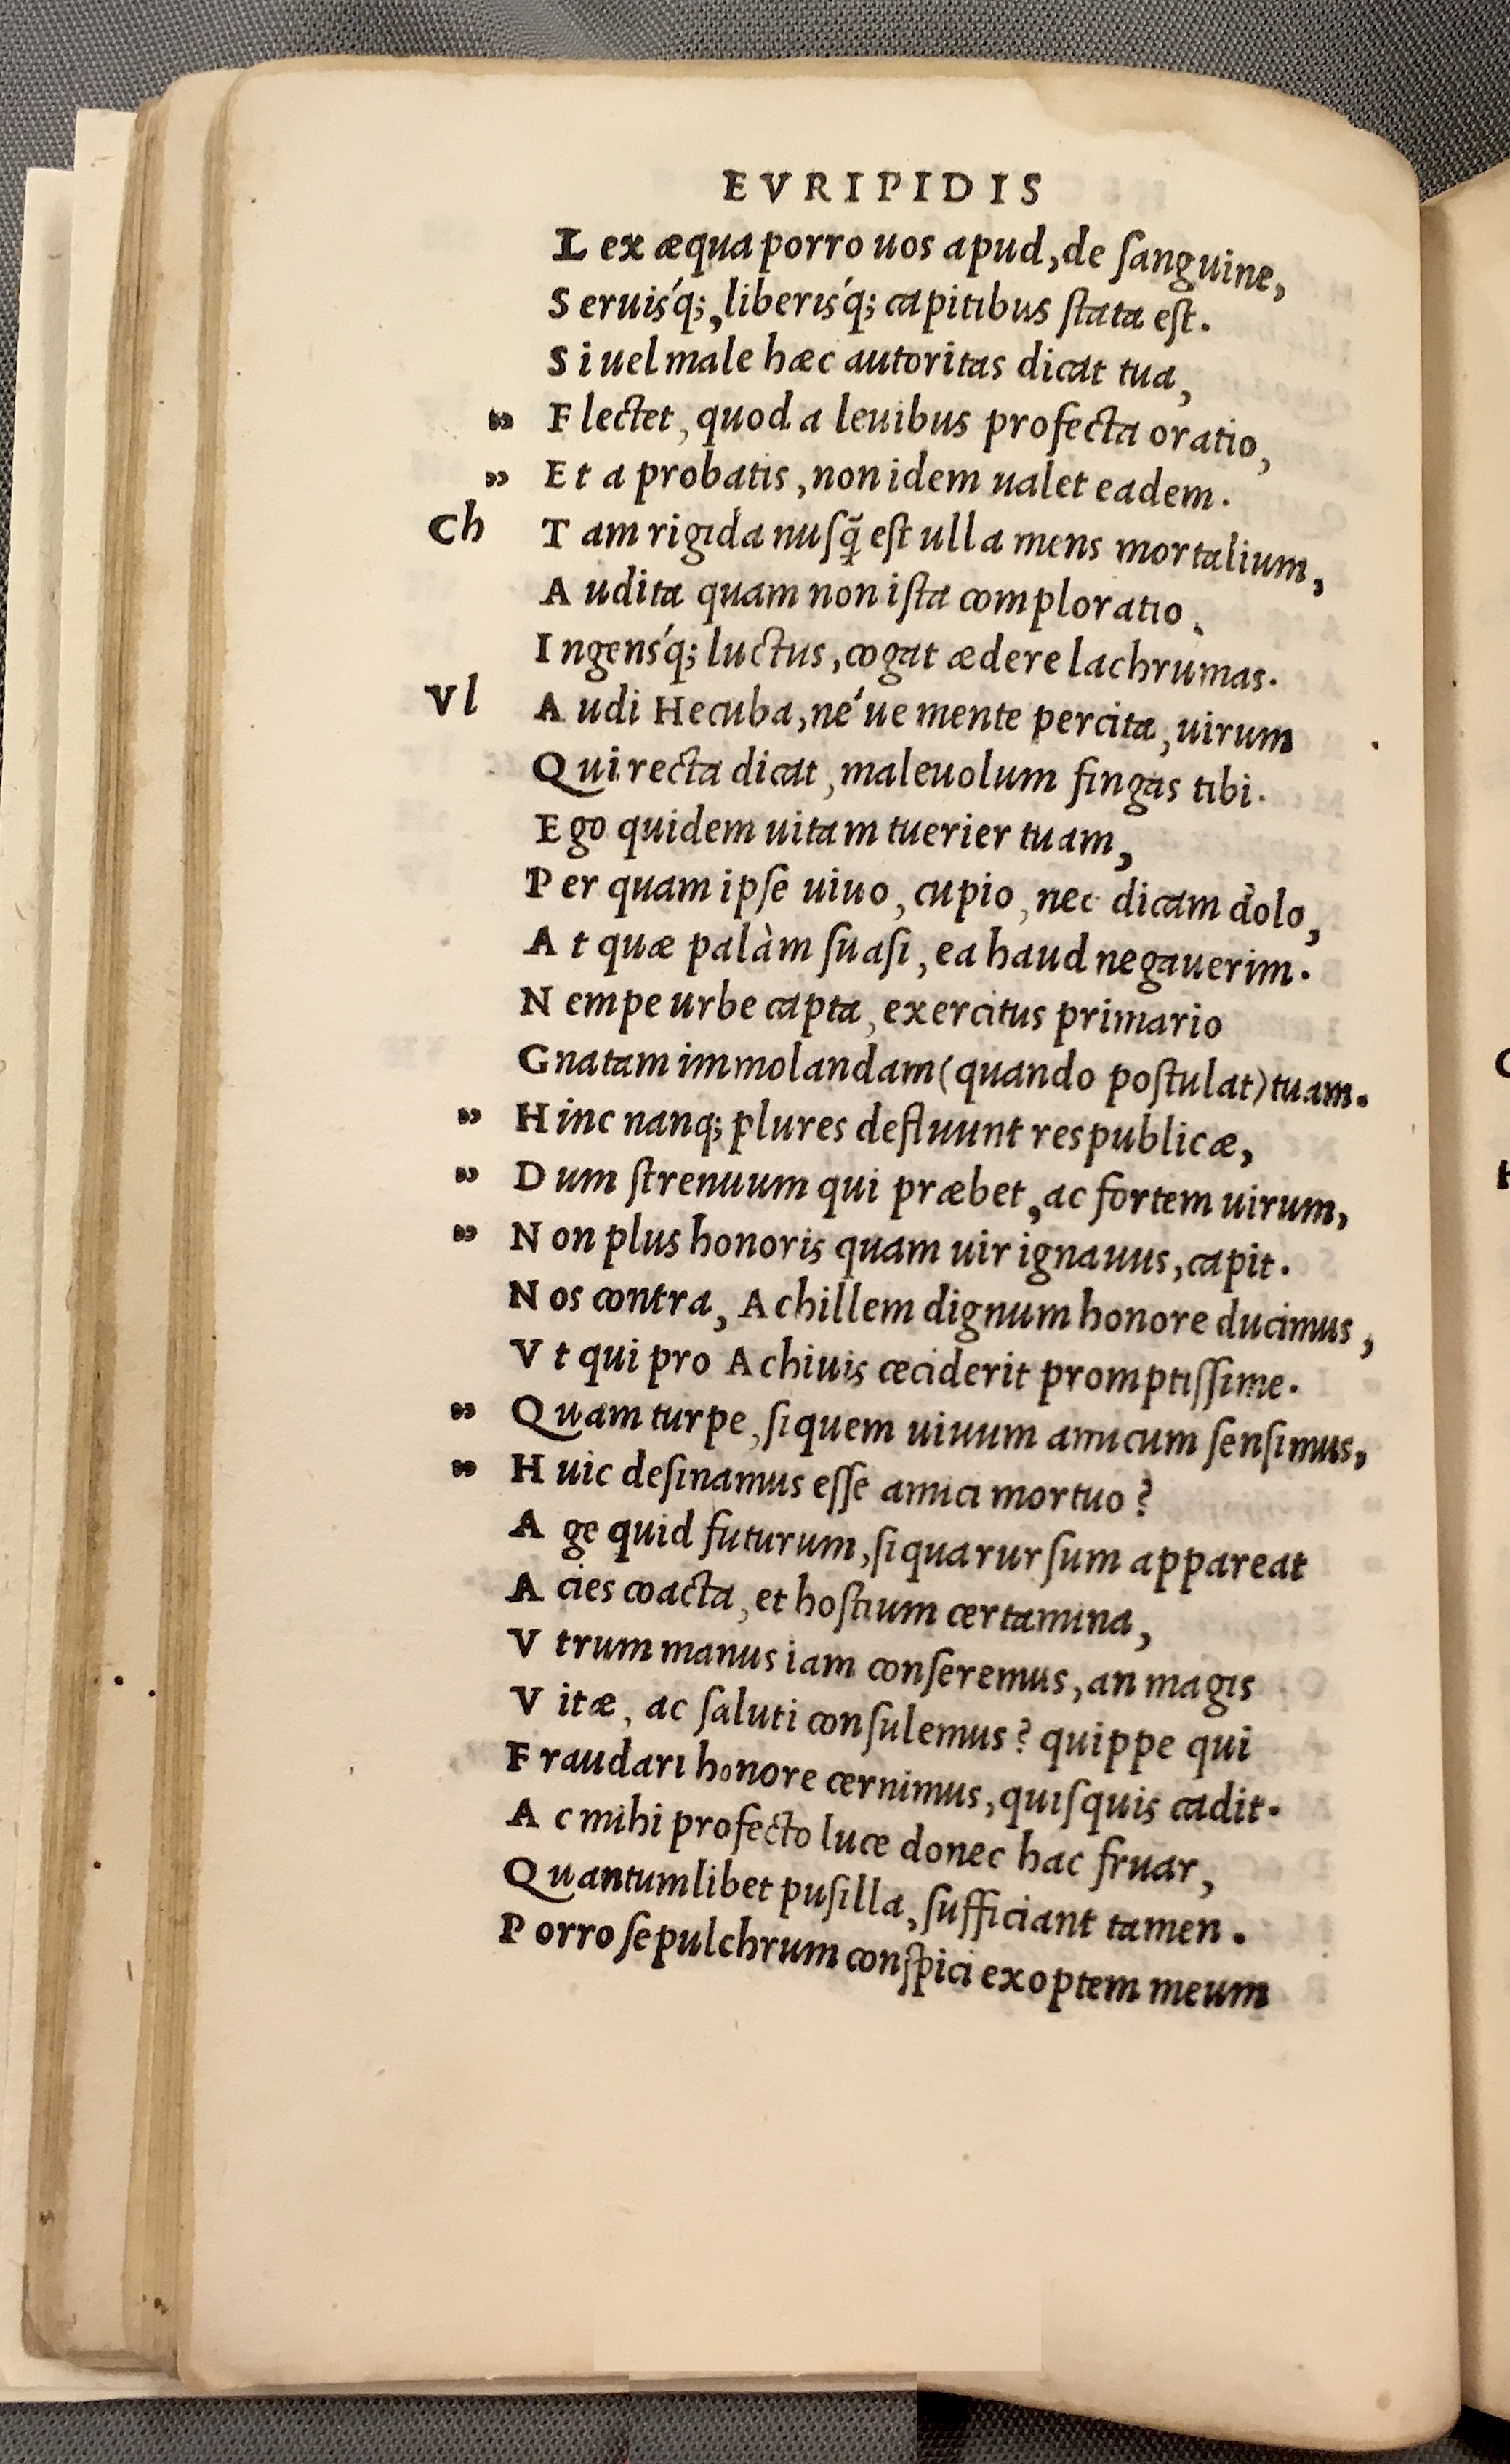 EVRIPIDIS
Lex æqua porro uos apud, de ſanguine,
Seruiś́q;, liberiś́q; capitibus ſtata eſt.
Si uel male hæc autoritas dicat tua,
„ Flectet, quod a leuibus profecta oratio,
„ Et a probatis, non idem ualet eadem.
Ch Tam rigida nuſq̃ eſt ulla mens mortalium,
Audita quam non iſta comploratio,
Ingenś́q; luctus, cogat ædere lachrumas.
Vl Audi Hecuba, né ue mente percita, uirum
Qui recta dicat, maleuolum fingas tibi.
Ego quidem uitam tuerier tuam,
Per quam ipſe uiuo, cupio, nec dicam dolo,
At quæ palàm ſuaſi, ea haud negauerim.
Nempe urbe capta, exercitus primario
Gnatam immolandam (quando poſtulat) tuam.
„ Hinc nanq; plures defluunt respublicæ,
„ Dum ſtrenuum qui præbet, ac fortem uirum,
„ Non plus honoris quam uir ignauus, capit.
Nos contra, Achillem dignum honore ducimus,
Vt qui pro Achiuis ceciderit promptiſſime.
„ Quam turpe, ſiquem uiuum amicum ſenſimus,
„ Huic deſinamus eſſe amici mortuo?
Age quid futurum, ſiqua rurſum appareat
Acies coacta, et hoſtium certamina,
Vtrum manus iam conſeremus, an magis
Vitæ, ac ſaluti conſulemus? quippe qui
Fraudari honore cernimus, quiſquis cadit.
Ac mihi profecto luce donec hac fruar,
Quantumlibet puſilla, ſufficiant tamen.
Porro ſepulchrum conſpici exoptem meum